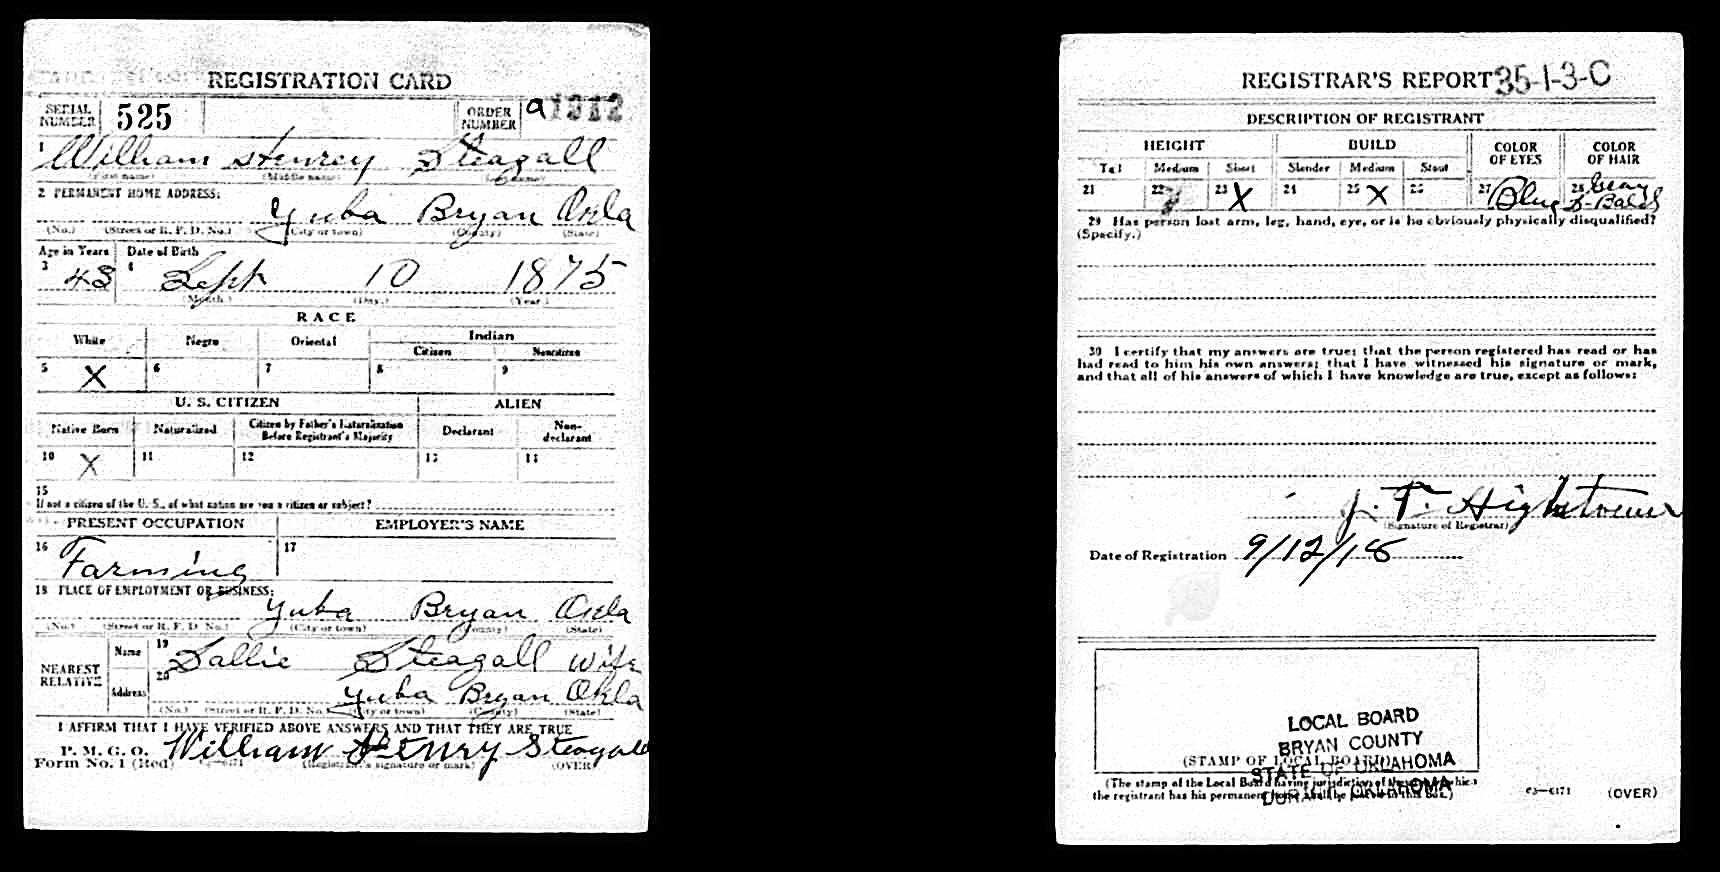 REGISTRATION CARD
SERIAL NUMBER 525 ORDER NUMBER a1312
1 William Henrey Steagall
(First name) (Middle name) (Last name)
2 PERMANENT HOME ADDRESS:
Yuba Bryan Okla
(No.) (Street or R. F. D. No.) (City or town) (County) (State)
Age in Years Date of Birth
3 43 4 Sept 10 1875
(Month.) (Day.) (Year.)
RACE
White Negro Oriental Indian
Citizen Noncitizen
5 X 6 7 8 9
U. S. CITIZEN ALIEN
Native Born Naturalized Citizen by Father's Naturalization Before Registrant's Majority Declarant Non-declarant
10 X 11 12 13 14
15
If not a citizen of the U. S., of what nation are you a citizen or subject?
PRESENT OCCUPATION EMPLOYER'S NAME
16 Farming 17
18 PLACE OF EMPLOYMENT OR BUSINESS:
Yuba Bryan Okla
(No.) (Street or R. F. D. No.) (City or town) (County) (State)
NEAREST RELATIVE
Name 19 Sallie Steagall wife
Address 20 Yuba Bryan Okla
(No.) (Street or R. F. D. No.) (City or town) (County) (State)
I AFFIRM THAT I HAVE VERIFIED ABOVE ANSWERS AND THAT THEY ARE TRUE
P. M. G. O.
Form No. 1 (Red) William Henry Steagall
(Registrant's signature or mark) (OVER)
REGISTRAR'S REPORT 35-1-3-C
DESCRIPTION OF REGISTRANT
HEIGHT BUILD COLOR OF EYES COLOR OF HAIR
Tall Medium Short Slender Medium Stout
21 22 23 X 24 25 X 26 27 Blue 28 Gray
29 Has person lost arm, leg, hand, eye, or is he obviously physically disqualified?
(Specify.)
30 I certify that my answers are true; that the person registered has read or has
had read to him his own answers; that I have witnessed his signature or mark,
and that all of his answers of which I have knowledge are true, except as follows:
J. T. Hightower
(Signature of Registrar)
Date of Registration 9/12/18
LOCAL BOARD
BRYAN COUNTY
(STAMP OF LOCAL BOARD)
STATE OF OKLAHOMA
DURANT, OKLAHOMA
(The stamp of the Local Board having jurisdiction of the area in which
the registrant has his permanent home shall be placed in this box.)
03—6171 (OVER)